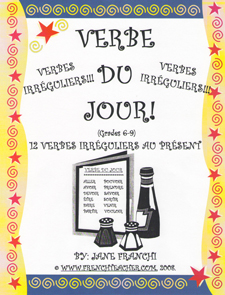 VERBE
DU
JOUR!
VERBES
IRRÉGULIERS!!!
VERBES
IRRÉGULIERS!!!
(Grades 6-9)
12 VERBES IRRÉGULIERS AU PRÉSENT
VERBE DU JOUR
ALLER POUVOIR
AVOIR PRENDRE
DEVOIR SAVOIR
ÊTRE SORTIR
FAIRE VENIR
PARTIR VOULOIR
BY: JANE FRANCHI
© WWW.FRENCHTEACHER.COM, 2008